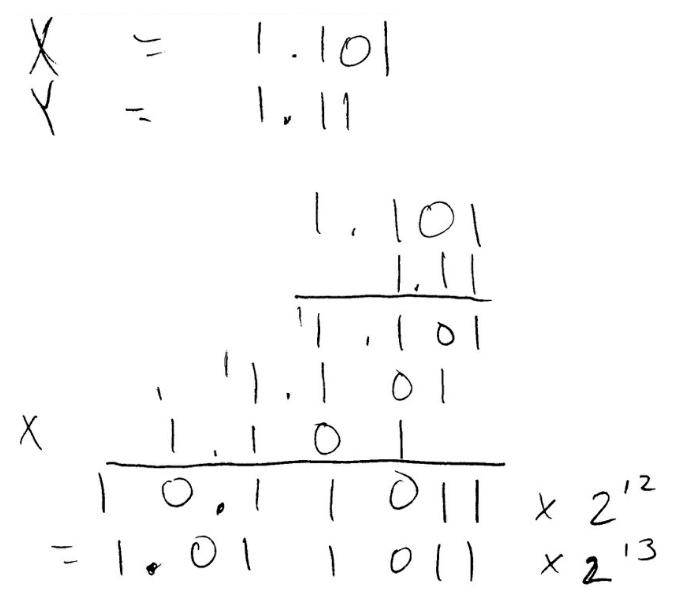 X = 1.101
Y = 1.11
1.101
1.11
1 1.101
1 1 1.101
X 1.101
10.11011 x 2^12
= 1.011011 x 2^13